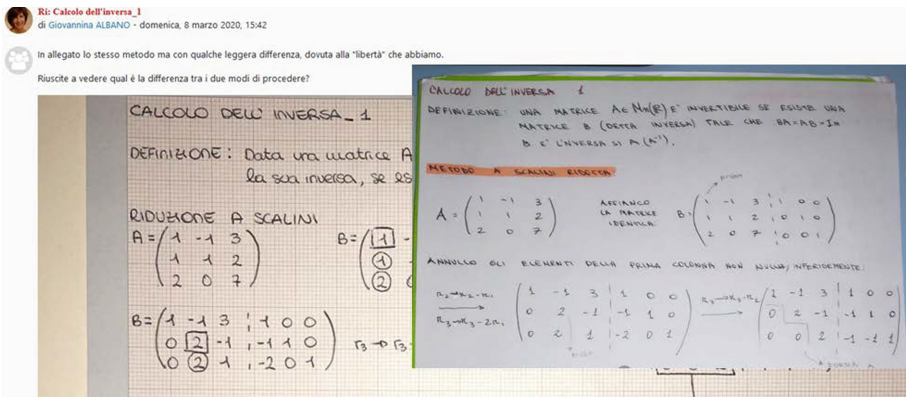 Ri: Calcolo dell'inversa_1
di Giovannina ALBANO - domenica, 8 marzo 2020, 15:42
In allegato lo stesso metodo ma con qualche leggera differenza, dovuta alla "libertà" che abbiamo.
Riuscite a vedere qual è la differenza tra i due modi di procedere?
CALCOLO DELL' INVERSA_1
DEFINIZIONE: Data una matrice A
la sua inversa, se es
RIDUZIONE A SCALINI
A = (1 -1 3
1 1 2
2 0 7)
B = (1 -
1
2 0
B = (1 -1 3 ¦ 1 0 0
0 2 -1 ¦ -1 1 0
0 2 1 ¦ -2 0 1)
r3 → r3 -
CALCOLO DELL'INVERSA 1
DEFINIZIONE: UNA MATRICE A∈Mn(R) E' INVERTIBILE SE ESISTE UNA
MATRICE B (DETTA INVERSA) TALE CHE BA=AB=In
B E' L'INVERSA DI A (A⁻¹).
METODO A SCALINI RIDOTTA
A = (1 -1 3
1 1 2
2 0 7)
AFFIANCO
LA MATRICE
IDENTICA
B = (1 -1 3 ¦ 1 0 0
1 1 2 ¦ 0 1 0
2 0 7 ¦ 0 0 1)
ANNULLO GLI ELEMENTI DELLA PRIMA COLONNA NON NULLI, INFERIORMENTE:
R2→R2-R1
R3→R3-2R1
(1 -1 3 ¦ 1 0 0
0 2 -1 ¦ -1 1 0
0 2 1 ¦ -2 0 1)
R3→R3-R2
(1 -1 3 ¦ 1 0 0
0 2 -1 ¦ -1 1 0
0 0 2 ¦ -1 -1 1)